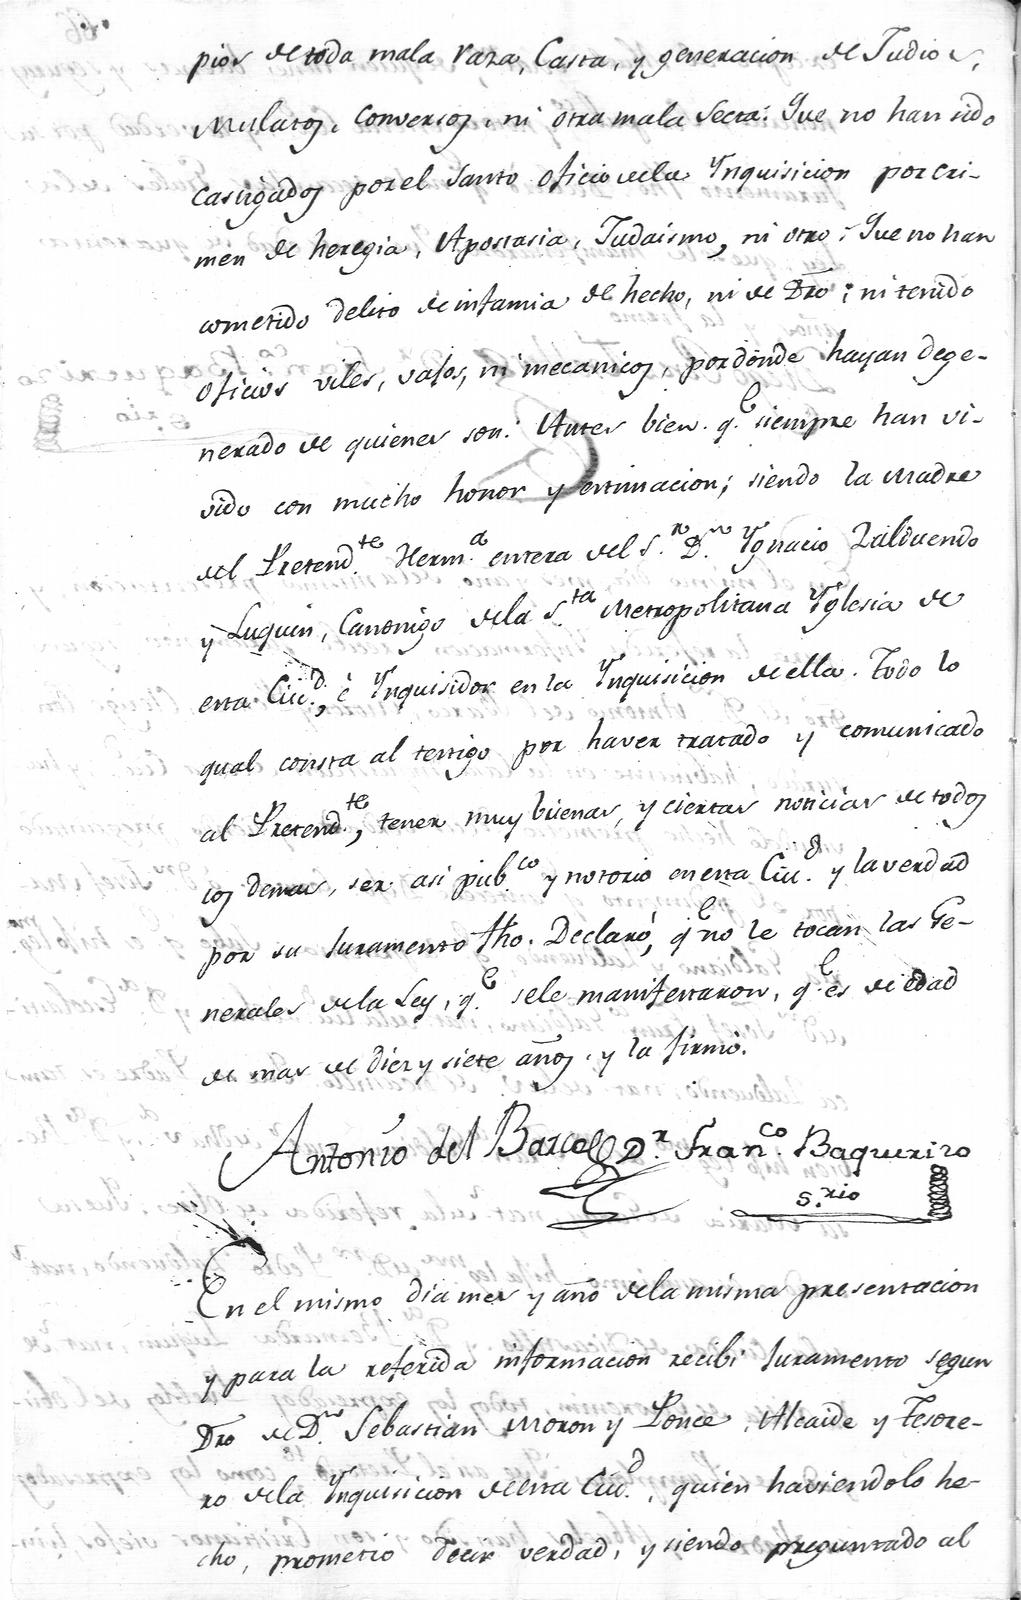 pios de toda mala raza, Casta, y generacion de Judios,
Mulatos, conversos, ni otra mala Secta: Que no han sido
castigados por el Santo oficio de la Ynquisicion por cri-
men de heregia, Apostasia, Judaismo, ni otro: Que no han
cometido delito de infamia de hecho, ni de Dro; ni tenido
oficios viles, vajos, ni mecanicos, por donde hayan dege-
nerado de quienes son: Antes bien qe. siempre han vi-
vido con mucho honor y estimacion; siendo la Madre
del Pretendte. Herma. entera del Sr. Dn. Ygnacio Zalduendo
y Luquin, Canonigo de la Sta. Metropolitana Yglesia de
esta Ciud., è Ynquisidor en la Ynquisicion de ella. Todo lo
qual consta al testigo por haver tratado y comunicado
al Pretendte., tener muy buenas, y ciertas noticias de todos
los demas, ser asi pubco. y notorio en esta Ciud. y la verdad
por su Juramento fho. Declaró, qe no le tocan las Ge-
nerales de la Ley, qe. se le manifestaron, qe. es de edad
de mas de diez y siete años, y la firmó.
Antonio del Barco Dr. Franco. Baquerizo
S.rio
En el mismo dia mes y año de la misma presentacion
y para la referida informacion recibi Juramento segun
Dro de Dn. Sebastian Moron y Ponce, Alcaide y Tesore-
ro de la Ynquisicion de esta Ciud., quien haviendolo he-
cho, prometio decir verdad, y siendo preguntado al